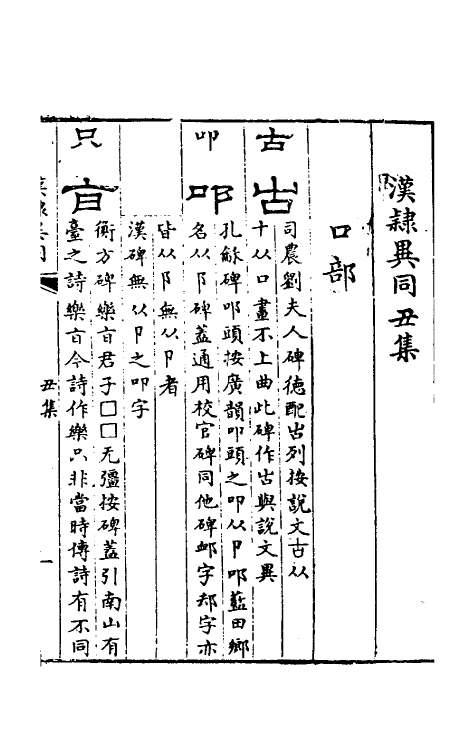 漢隸異同丑集
口部
古
古司農劉夫人碑德配古列按說文古从
十从口畫不上曲此碑作古與說文異
叩
叩孔龢碑叩頭按廣韻叩頭之叩从卩邔藍田鄉
名从阝碑蓋通用校官碑同他碑邮字邦字亦
皆从阝無从卩者
漢碑無从卩之叩字
只
㫖衡方碑樂㫖君子□□无彊按碑蓋引南山有
臺之詩樂㫖今詩作樂只非當時傳詩有不同
丑集
一